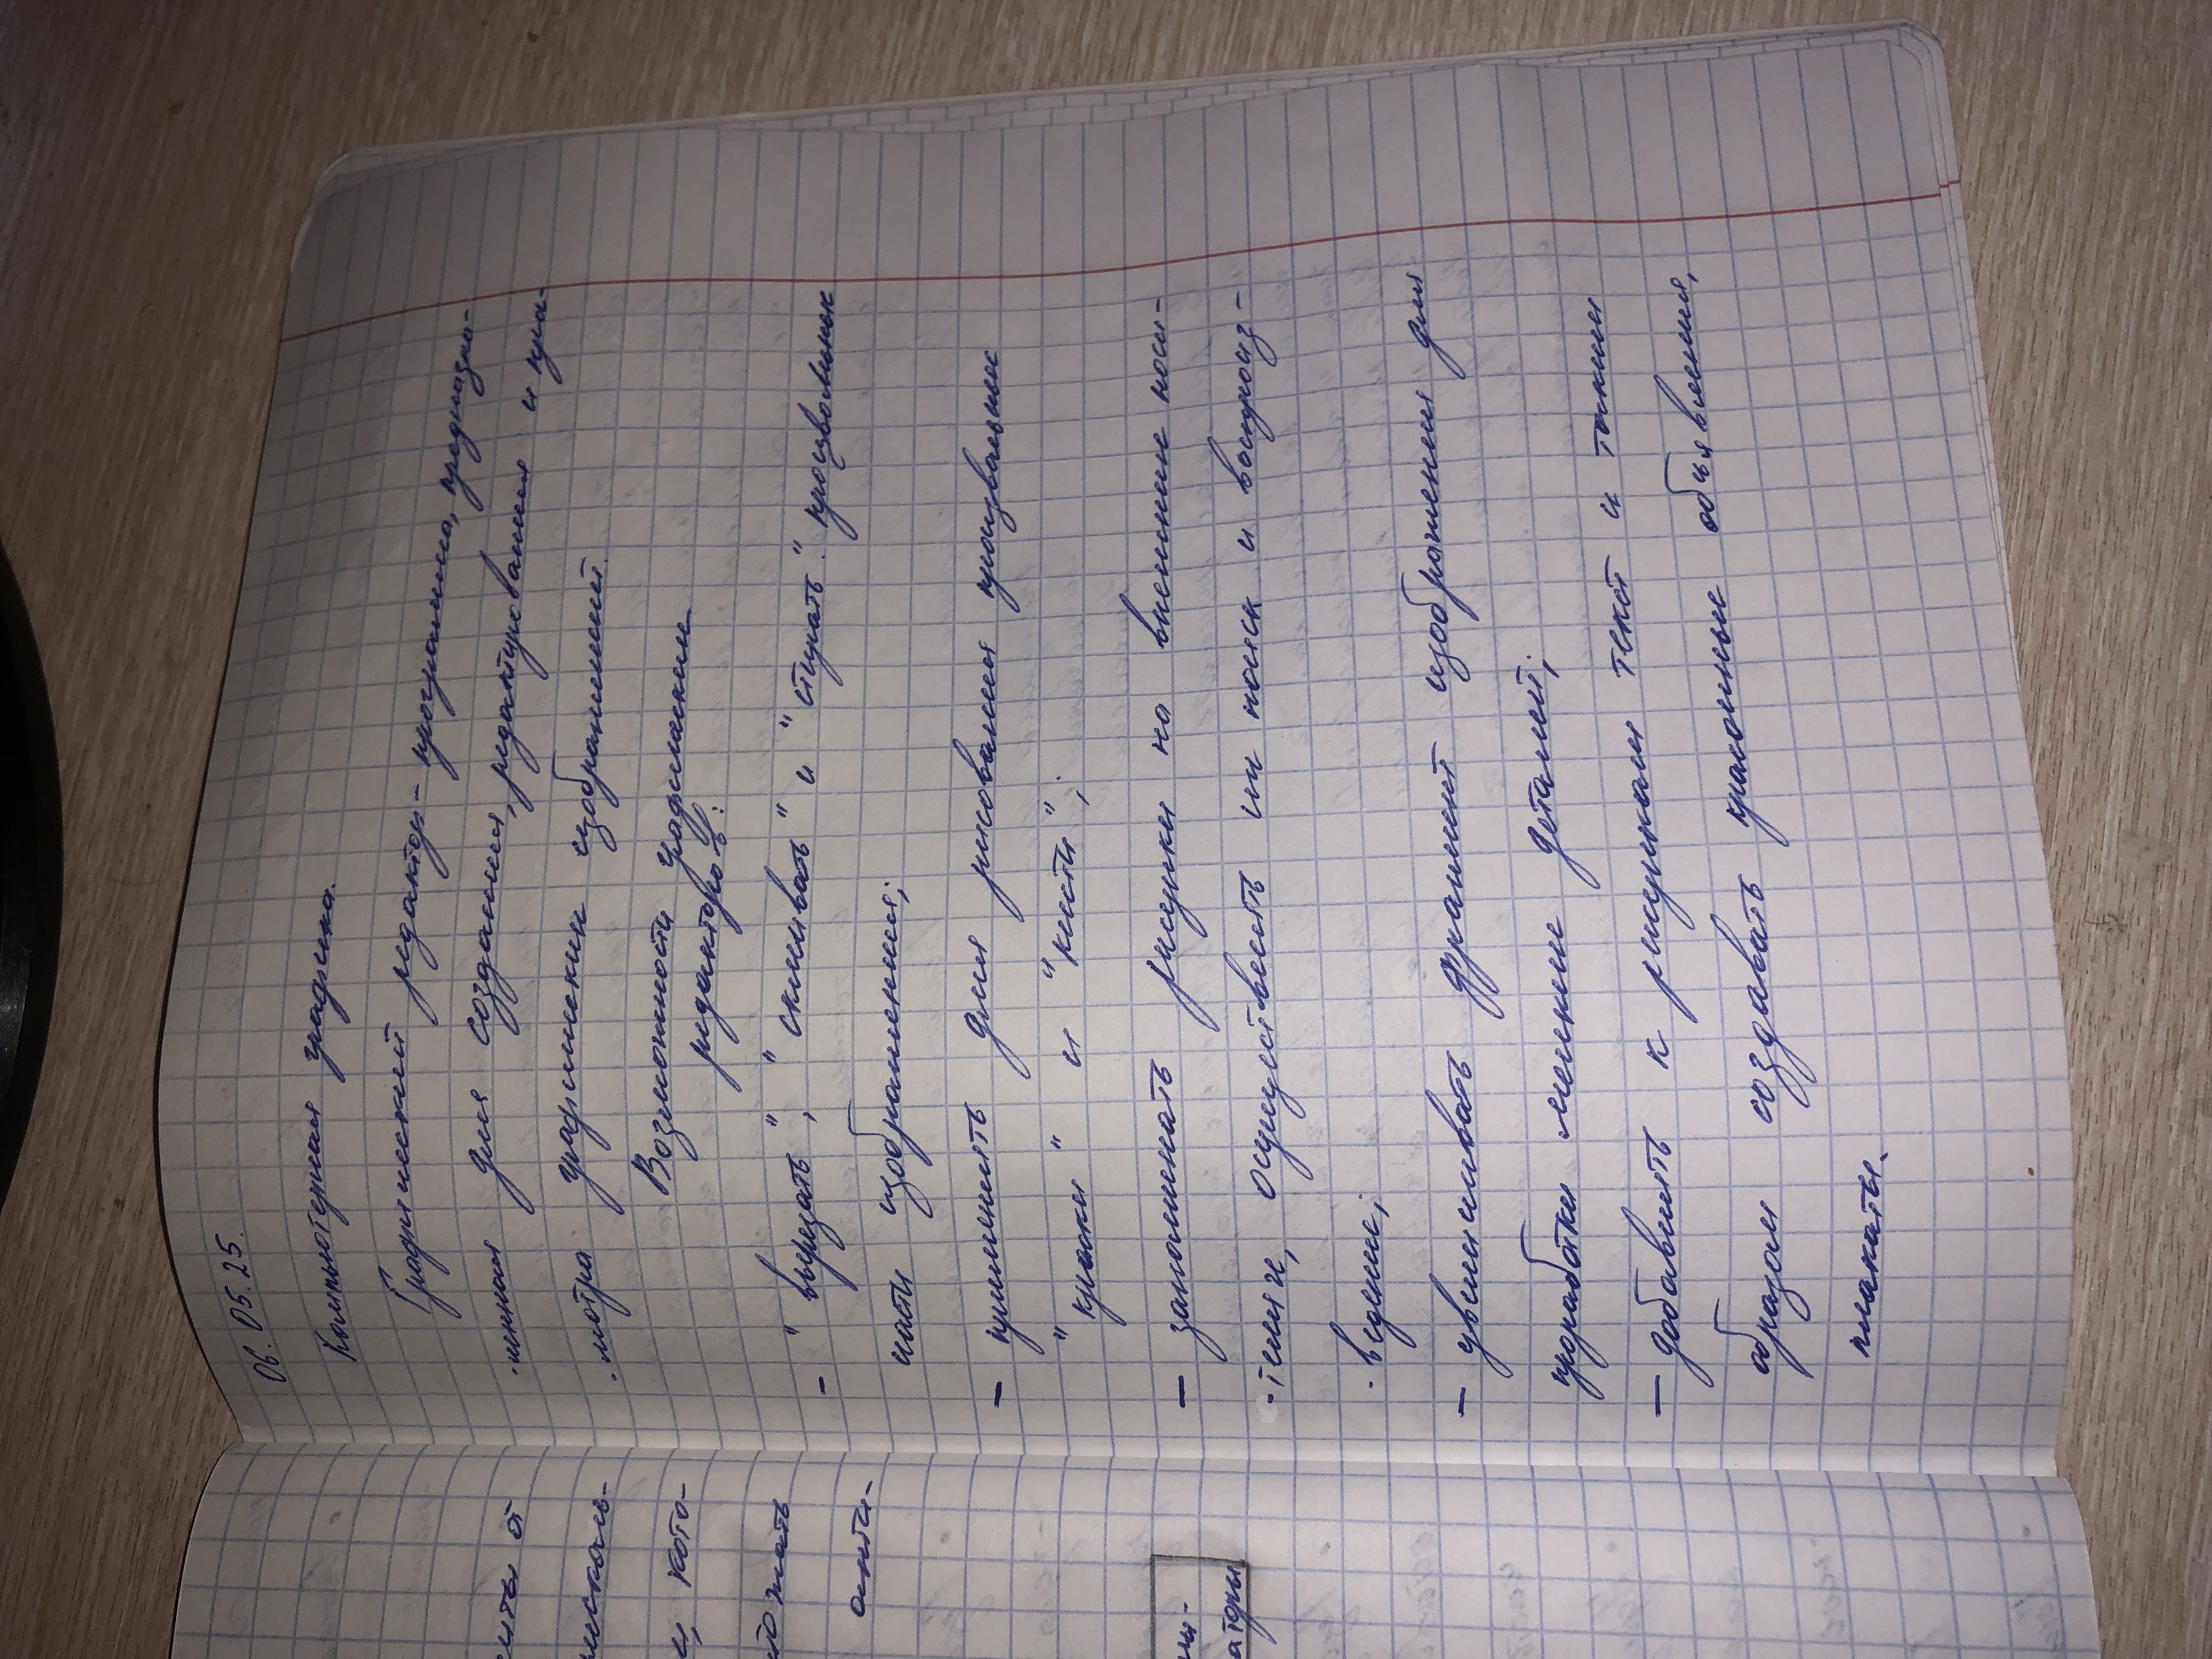 06.05.25.
Компьютерная графика.
Графический редактор - программа, предназна-
ченная для создания, редактирования и прос-
мотра графических изображений.
Возможности графических
редакторов:
- "вырезать", "склеивать" и "стирать" произвольные
части изображения;
- применять для рисования произвольные
"краски" и "кисти";
- запоминать рисунки на внешних носи-
телях, осуществлять их поиск и воспроиз-
ведение;
- увеличивать фрагмент изображения для
проработки мелких деталей;
- добавлять к рисункам текст и таким
образом создавать красочные объявления,
плакаты.
от
кото-
анти-